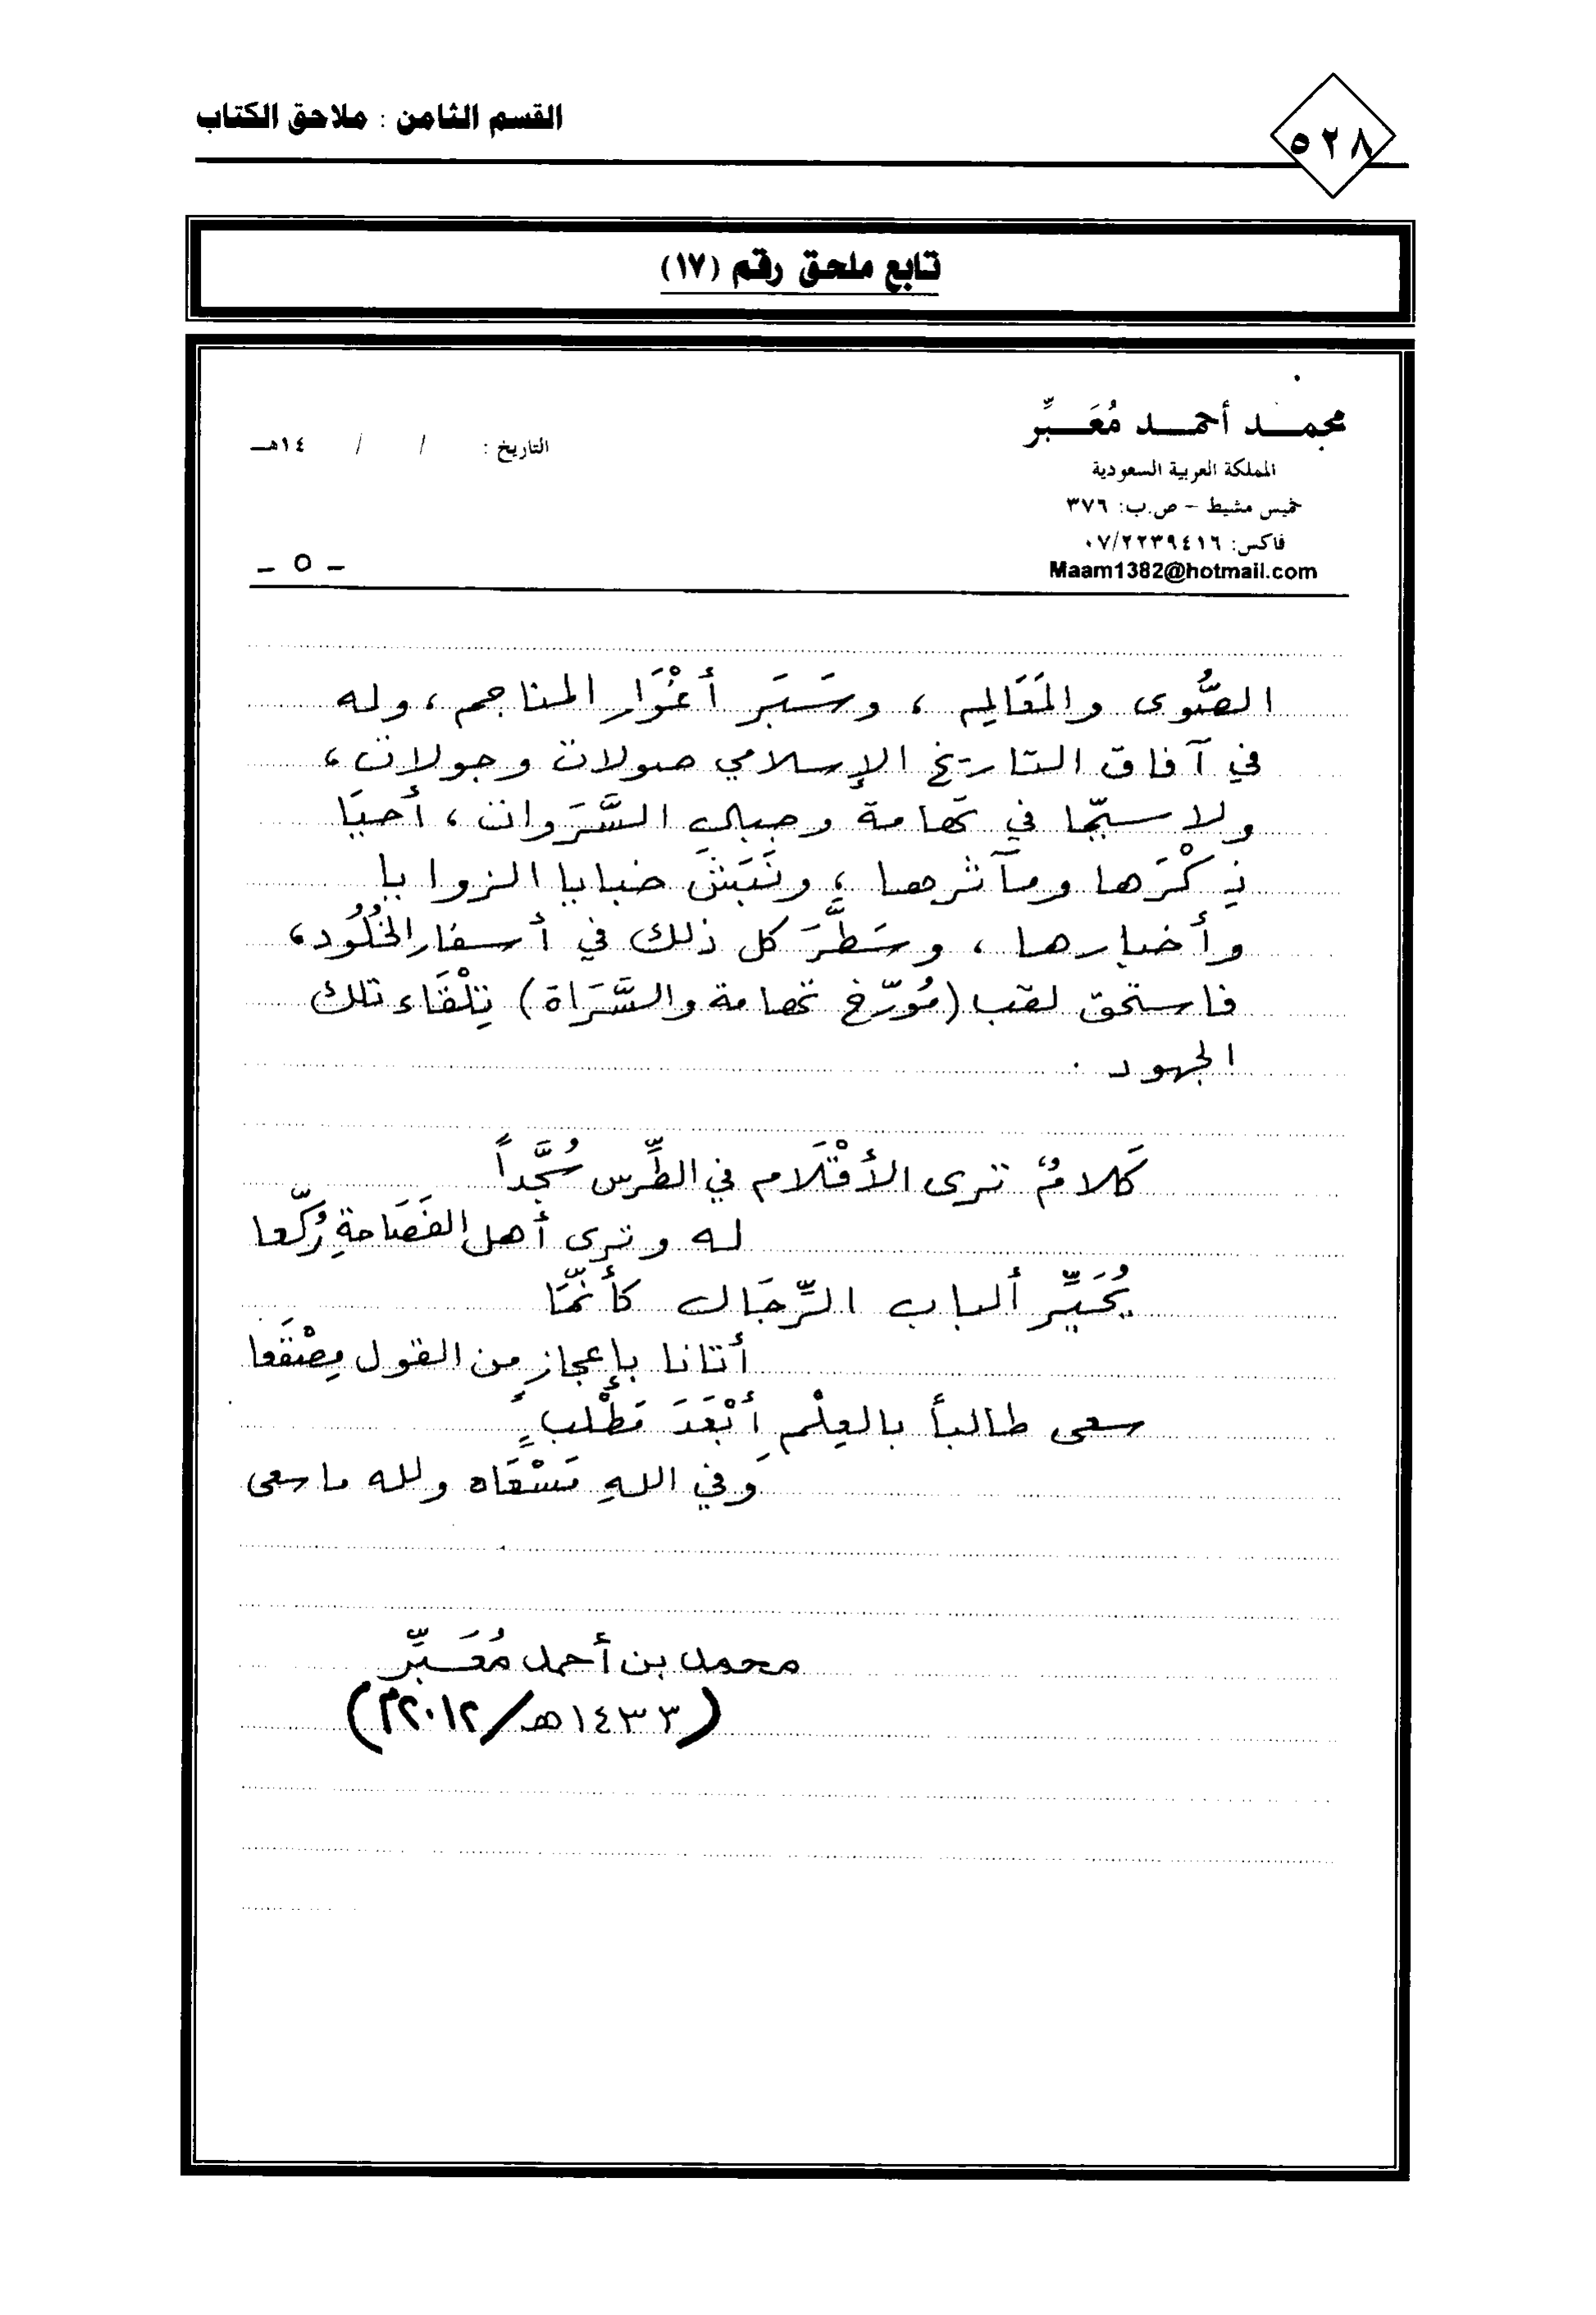 القسم الثامن : ملاحق الكتاب
٥٢٨
تابع ملحق رقم (١٧)
محمد أحمد مُعَبِّر
المملكة العربية السعودية
خميس مشيط - ص.ب: ٣٧٦
فاكس: ٠٧/٢٢٣٩٤١٦
Maam1382@hotmail.com
التاريخ : / / ١٤هـ
- ٥ -
الصُّوى والمَعَالِم ، وسَبَر أغْوَار المناجم ، وله
في آفاق التاريخ الإسلامي صولات وجولات ،
ولا سيّما في تهامة وجبال السَّرَوات ، أحيَا
ذِكْرَها ومآثرها ، ونَبَشَ خبايا الزوايا
وأخبارها ، وسَطَّرَ كل ذلك في أسفار الخُلُود ،
فاستحق لقب (مُورّخ تهامة والسَّرَاة) تِلْقَاء تلك
الجهود .
كَلامٌ ترى الأقْلَام في الطِّرس سُجَّداً
له وترى أهل الفَصَاحةِ رُكّعا
يُحَيِّر ألباب الرِّجَال كأنّمَا
أتانا بإعجازٍ من القول مِصْقَعا
سعى طالباً بالعِلْمِ أبْعَدَ مَطْلبٍ
وفي اللهِ مَسْعَاه ولله ما سعى
محمد بن أحمد مُعَبِّر
(١٤٣٣هـ/٢٠١٢م)